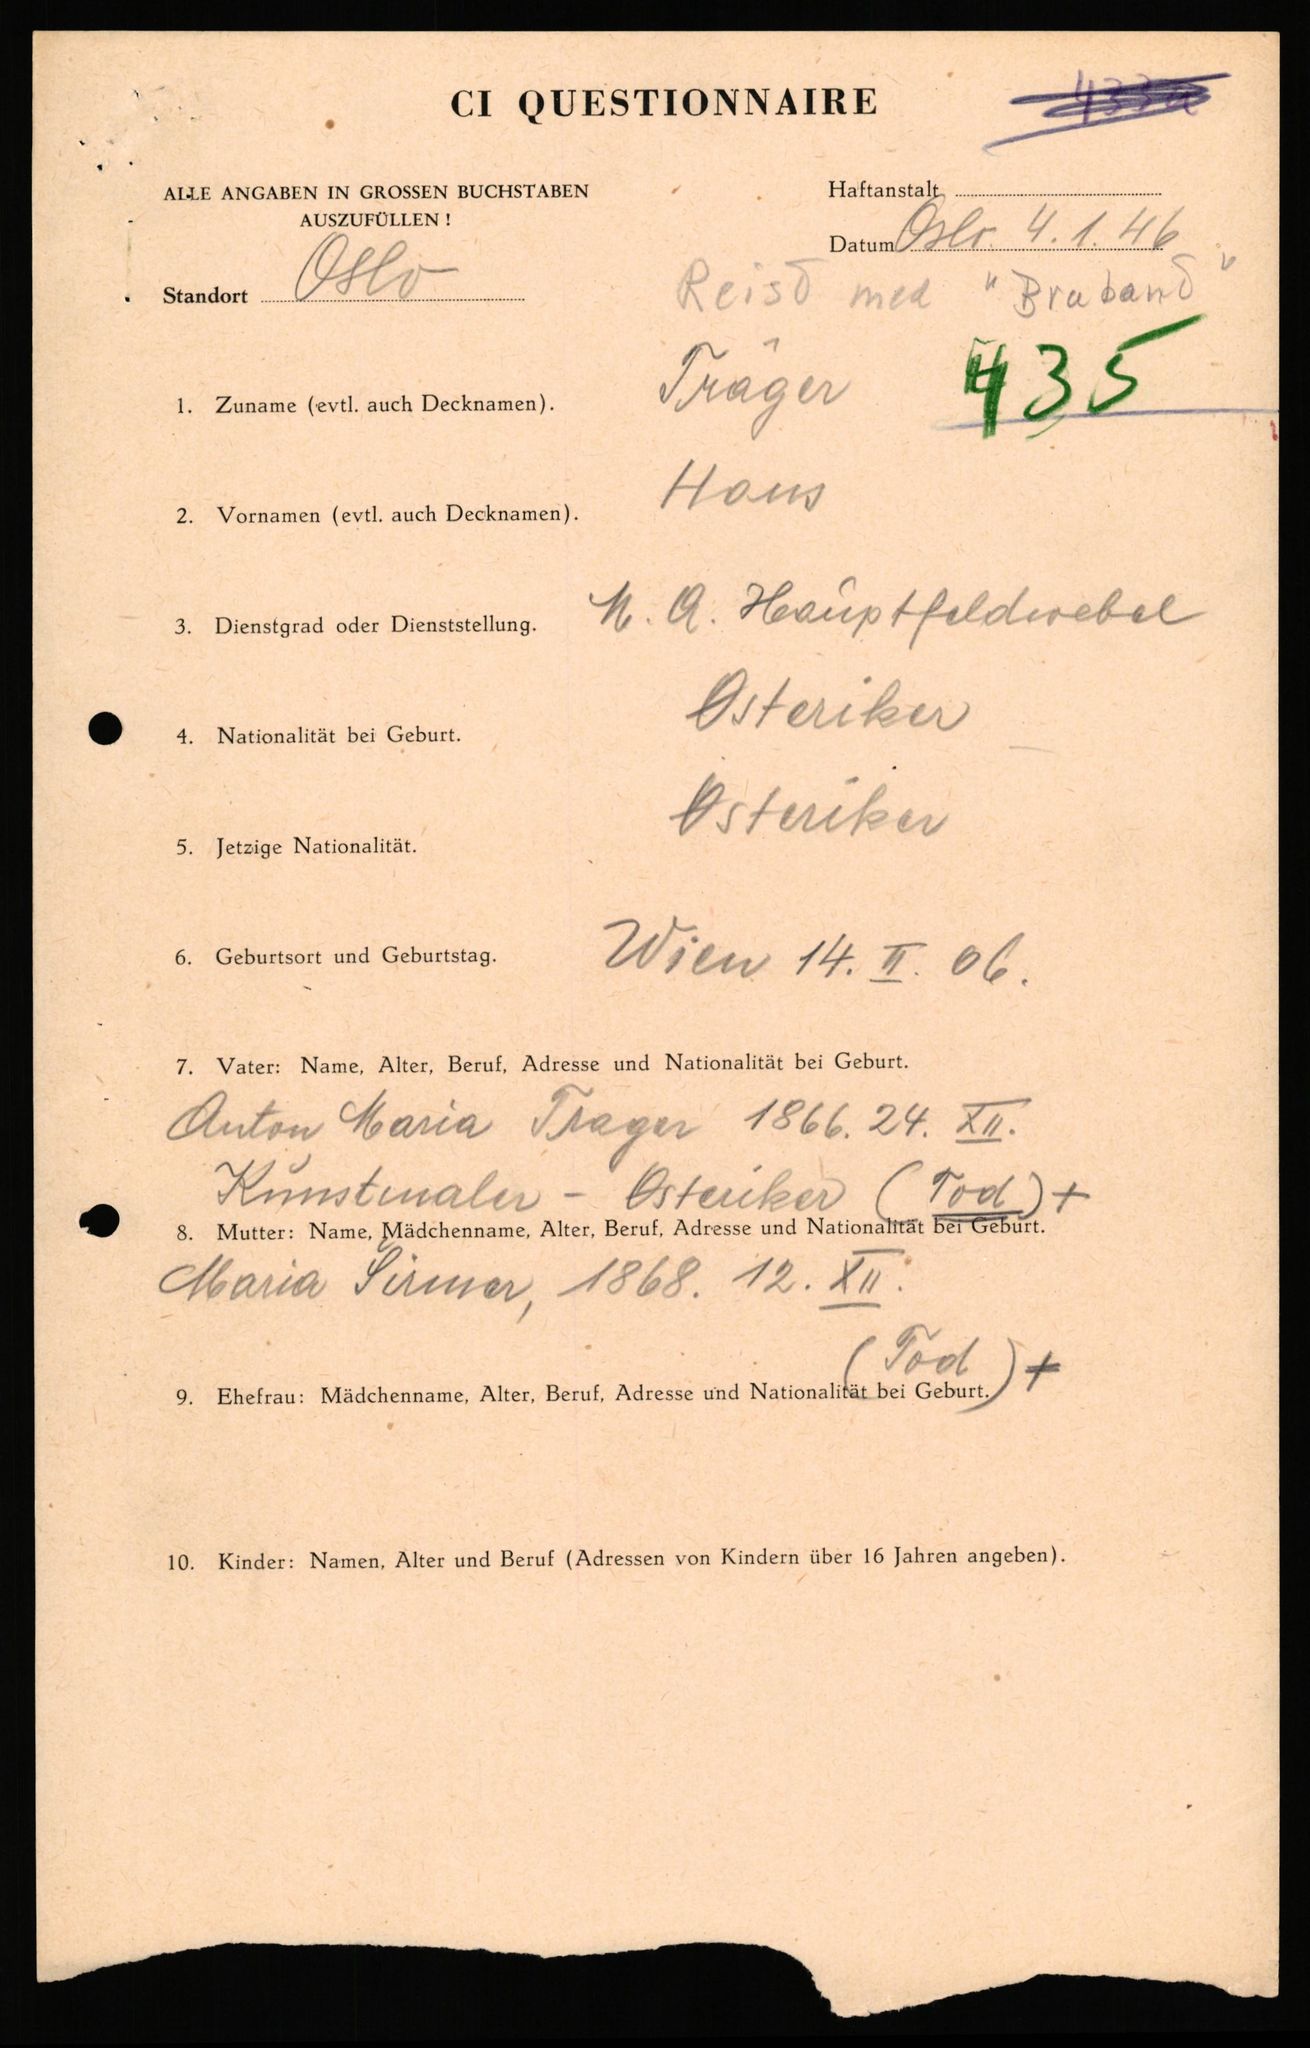 CI QUESTIONNAIRE
ALLE ANGABEN IN GROSSEN BUCHSTABEN
AUSZUFÜLLEN !
Haftanstalt
Datum Oslo. 4.1.46
Standort Oslo
Reist med "Braband"
1. Zuname (evtl. auch Decknamen). Träger
435
2. Vornamen (evtl. auch Decknamen). Hans
3. Dienstgrad oder Dienststellung. M. A. Hauptfeldwebel
4. Nationalität bei Geburt. Osteriker
5. Jetzige Nationalität. Osteriker
6. Geburtsort und Geburtstag. Wien 14. II. 06.
7. Vater: Name, Alter, Beruf, Adresse und Nationalität bei Geburt.
Anton Maria Trager 1866. 24. XII.
Kunstmaler - Osteriker (Tod) +
8. Mutter: Name, Mädchenname, Alter, Beruf, Adresse und Nationalität bei Geburt.
Maria Sirmer, 1868. 12. XII.
(Tod) +
9. Ehefrau: Mädchenname, Alter, Beruf, Adresse und Nationalität bei Geburt.
10. Kinder: Namen, Alter und Beruf (Adressen von Kindern über 16 Jahren angeben).